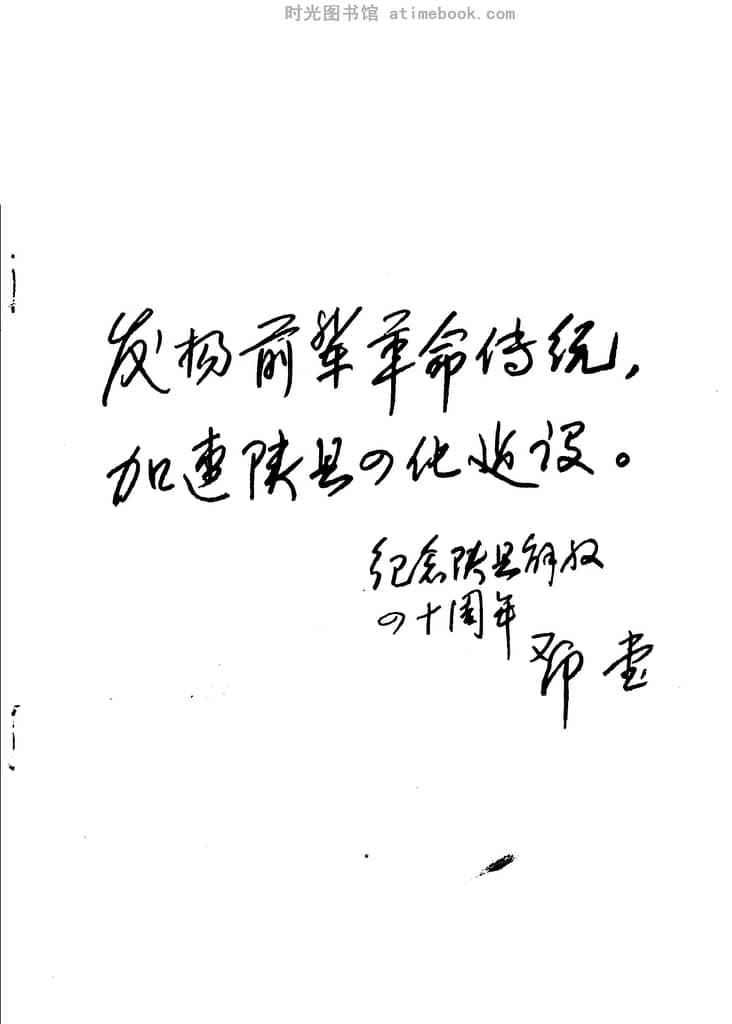 时光图书馆 atimebook.com
发扬前辈革命传统，
加速陕县四化建设。
纪念陕县解放
四十周年
邓